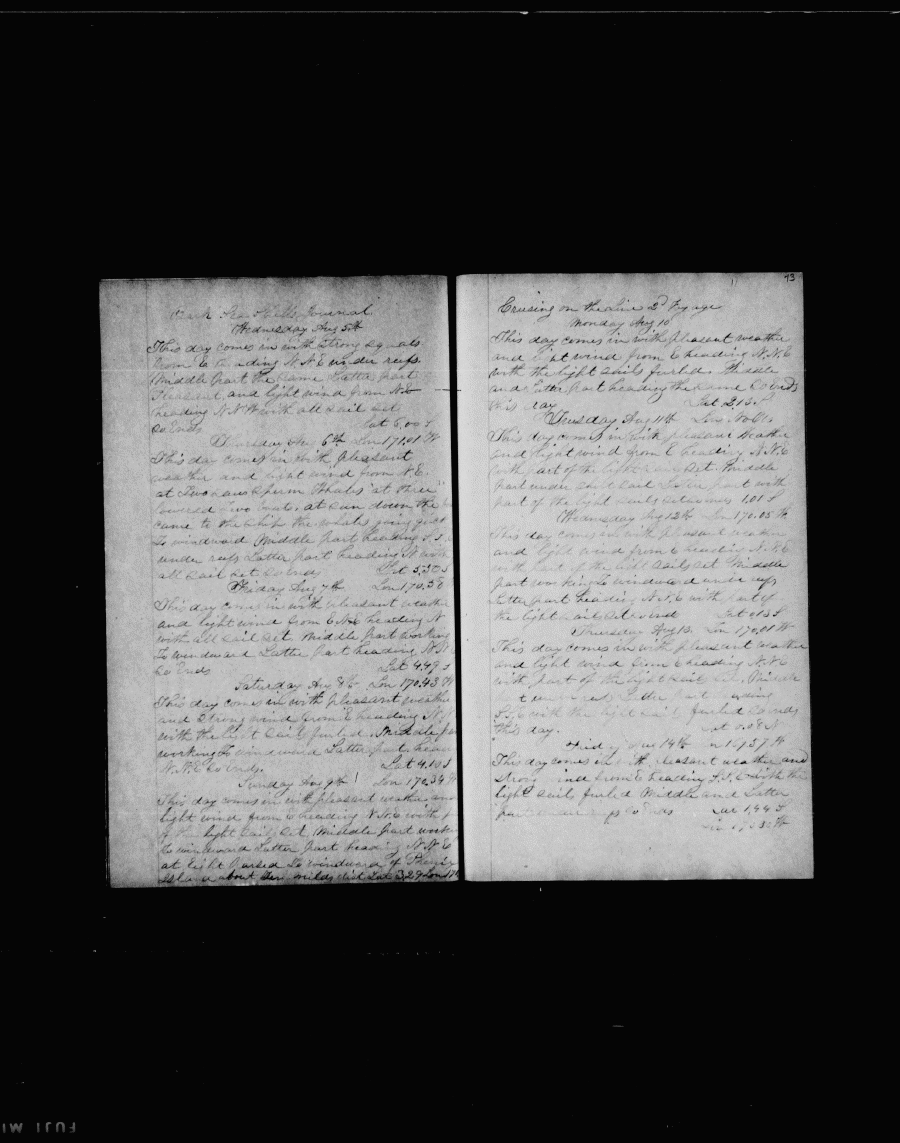 Bark Sea Shells Journal
Wednesday Aug 5th
This day comes in with strong squals
from E heading N.N.E under reefs
Middle part the same Latter part
Pleasant and light wind from N.E
heading N.N.W with all sail set
So Ends Lat 6.00 S
Thursday Aug 6th Lon 171.01 W
This day comes in with pleasant
weather and light wind from N.E.
at Two saw Sperm Whales at three
lowered Two boats at sun down the
came to the Ship the whales going quick
To windward Middle part heading S.S.
under reefs Latter part heading N with
all sail set So Ends Lat 5.30 S
Friday Aug 7th Lon 170.38
This day comes in with pleasant weather
and light wind from E.N.E heading N
with all sail set Middle part working
To windward Latter part heading N.N.
So Ends Lat 4.49 S
Saturday Aug 8th Lon 170.43 W
This day comes in with pleasant weather
and strong winds from E heading N.
with the light sails furled Middle
working To windward Latter part
N.N.E So Ends. Lat 4.10 S
Sunday Aug 9th Lon 170.34 W
This day comes in with pleasant weather and
light wind from E heading N.N.E with
of the light sails set Middle part
To windward Latter part heading N.N.E
at light Passed To windward of
Island about miles dist Lat 3,29 Lon
73
Cruising on the Line 2d Voyage
Monday Aug 10
This day comes in with pleasant weather
and light wind from E heading N.N.E
with the light sails furled Middle
and Latter part heading the same So ends
this day Lat 2.13 S
Tuesday Aug 11th Lon
This day comes in with pleasant weather
and light wind from E heading N.N.E
with part of the light sails set Middle
part under short sail Latter part with
part of the light sails set 1.01 S
Wednesday Aug 12th Lon 170.05 W
This day comes in with pleasant weather
and light wind from E heading N.N.E
with part of the light sails set Middle
part working To windward under reefs
Latter part heading N.N.E with part of
the light sails set So ends Lat 0 13 S
Thursday Aug 13. Lon 170.01 W
This day comes in with pleasant weather
and light wind from E heading N.N.E
with part of the light sails set Middle
under reefs Latter part heading
S.S.E with the light sails furled So ends
this day. Lat 0.08 N
Friday Aug 14th
This day comes in with pleasant weather and
strong wind from E heading S.S.E with the
light sails furled Middle and Latter
part under So Ends Lat 1,44 S